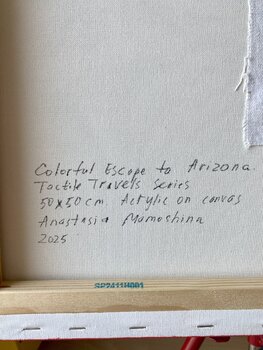 Colorful Escape to Arizona.
Tactile Travels series
50x50cm Acrylic on canvas
Anastasia Mamoshina
2025
SP2411H001